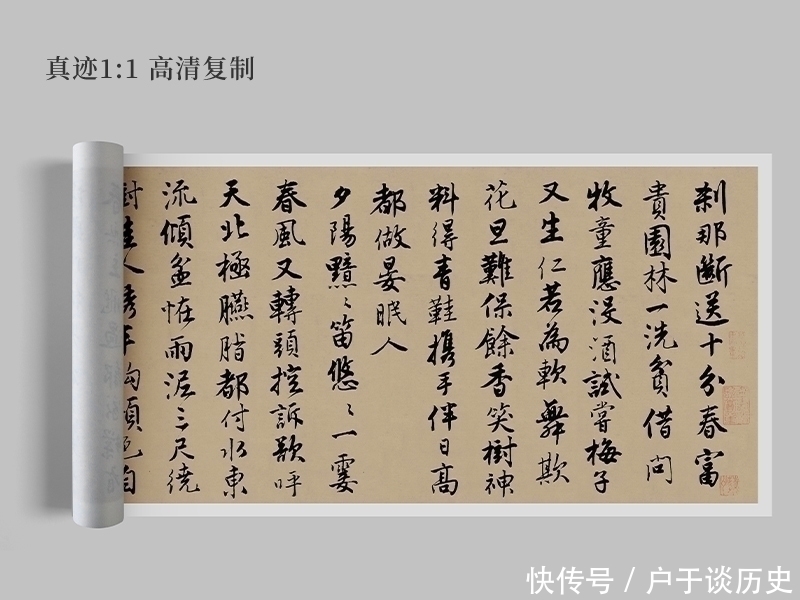 真迹1:1 高清复制
刹那断送十分春富
貴園林一洗貧借问
牧童應没酒試嘗梅子
又生仁若為軟舞欺
花旦難保餘香笑樹神
料得青鞋携手伴日高
都做晏眠人
夕陽黯〻笛悠〻一霎
春風又轉頭控訴欲呼
天北極臙脂都付水東
流傾盆怪雨泥三尺繞
樹佳人繡半鈎頋色自
快传号 / 户于谈历史